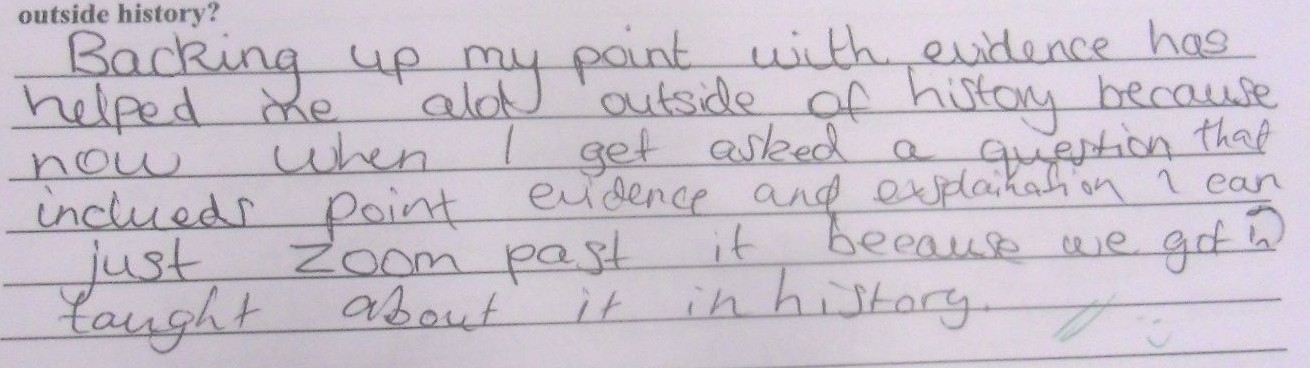 outside history?
Backing up my point with evidence has
helped me alot outside of history because
now when I get asked a question that
inclueds point evidence and explaination I can
just zoom past it because we got
taught about it in history.